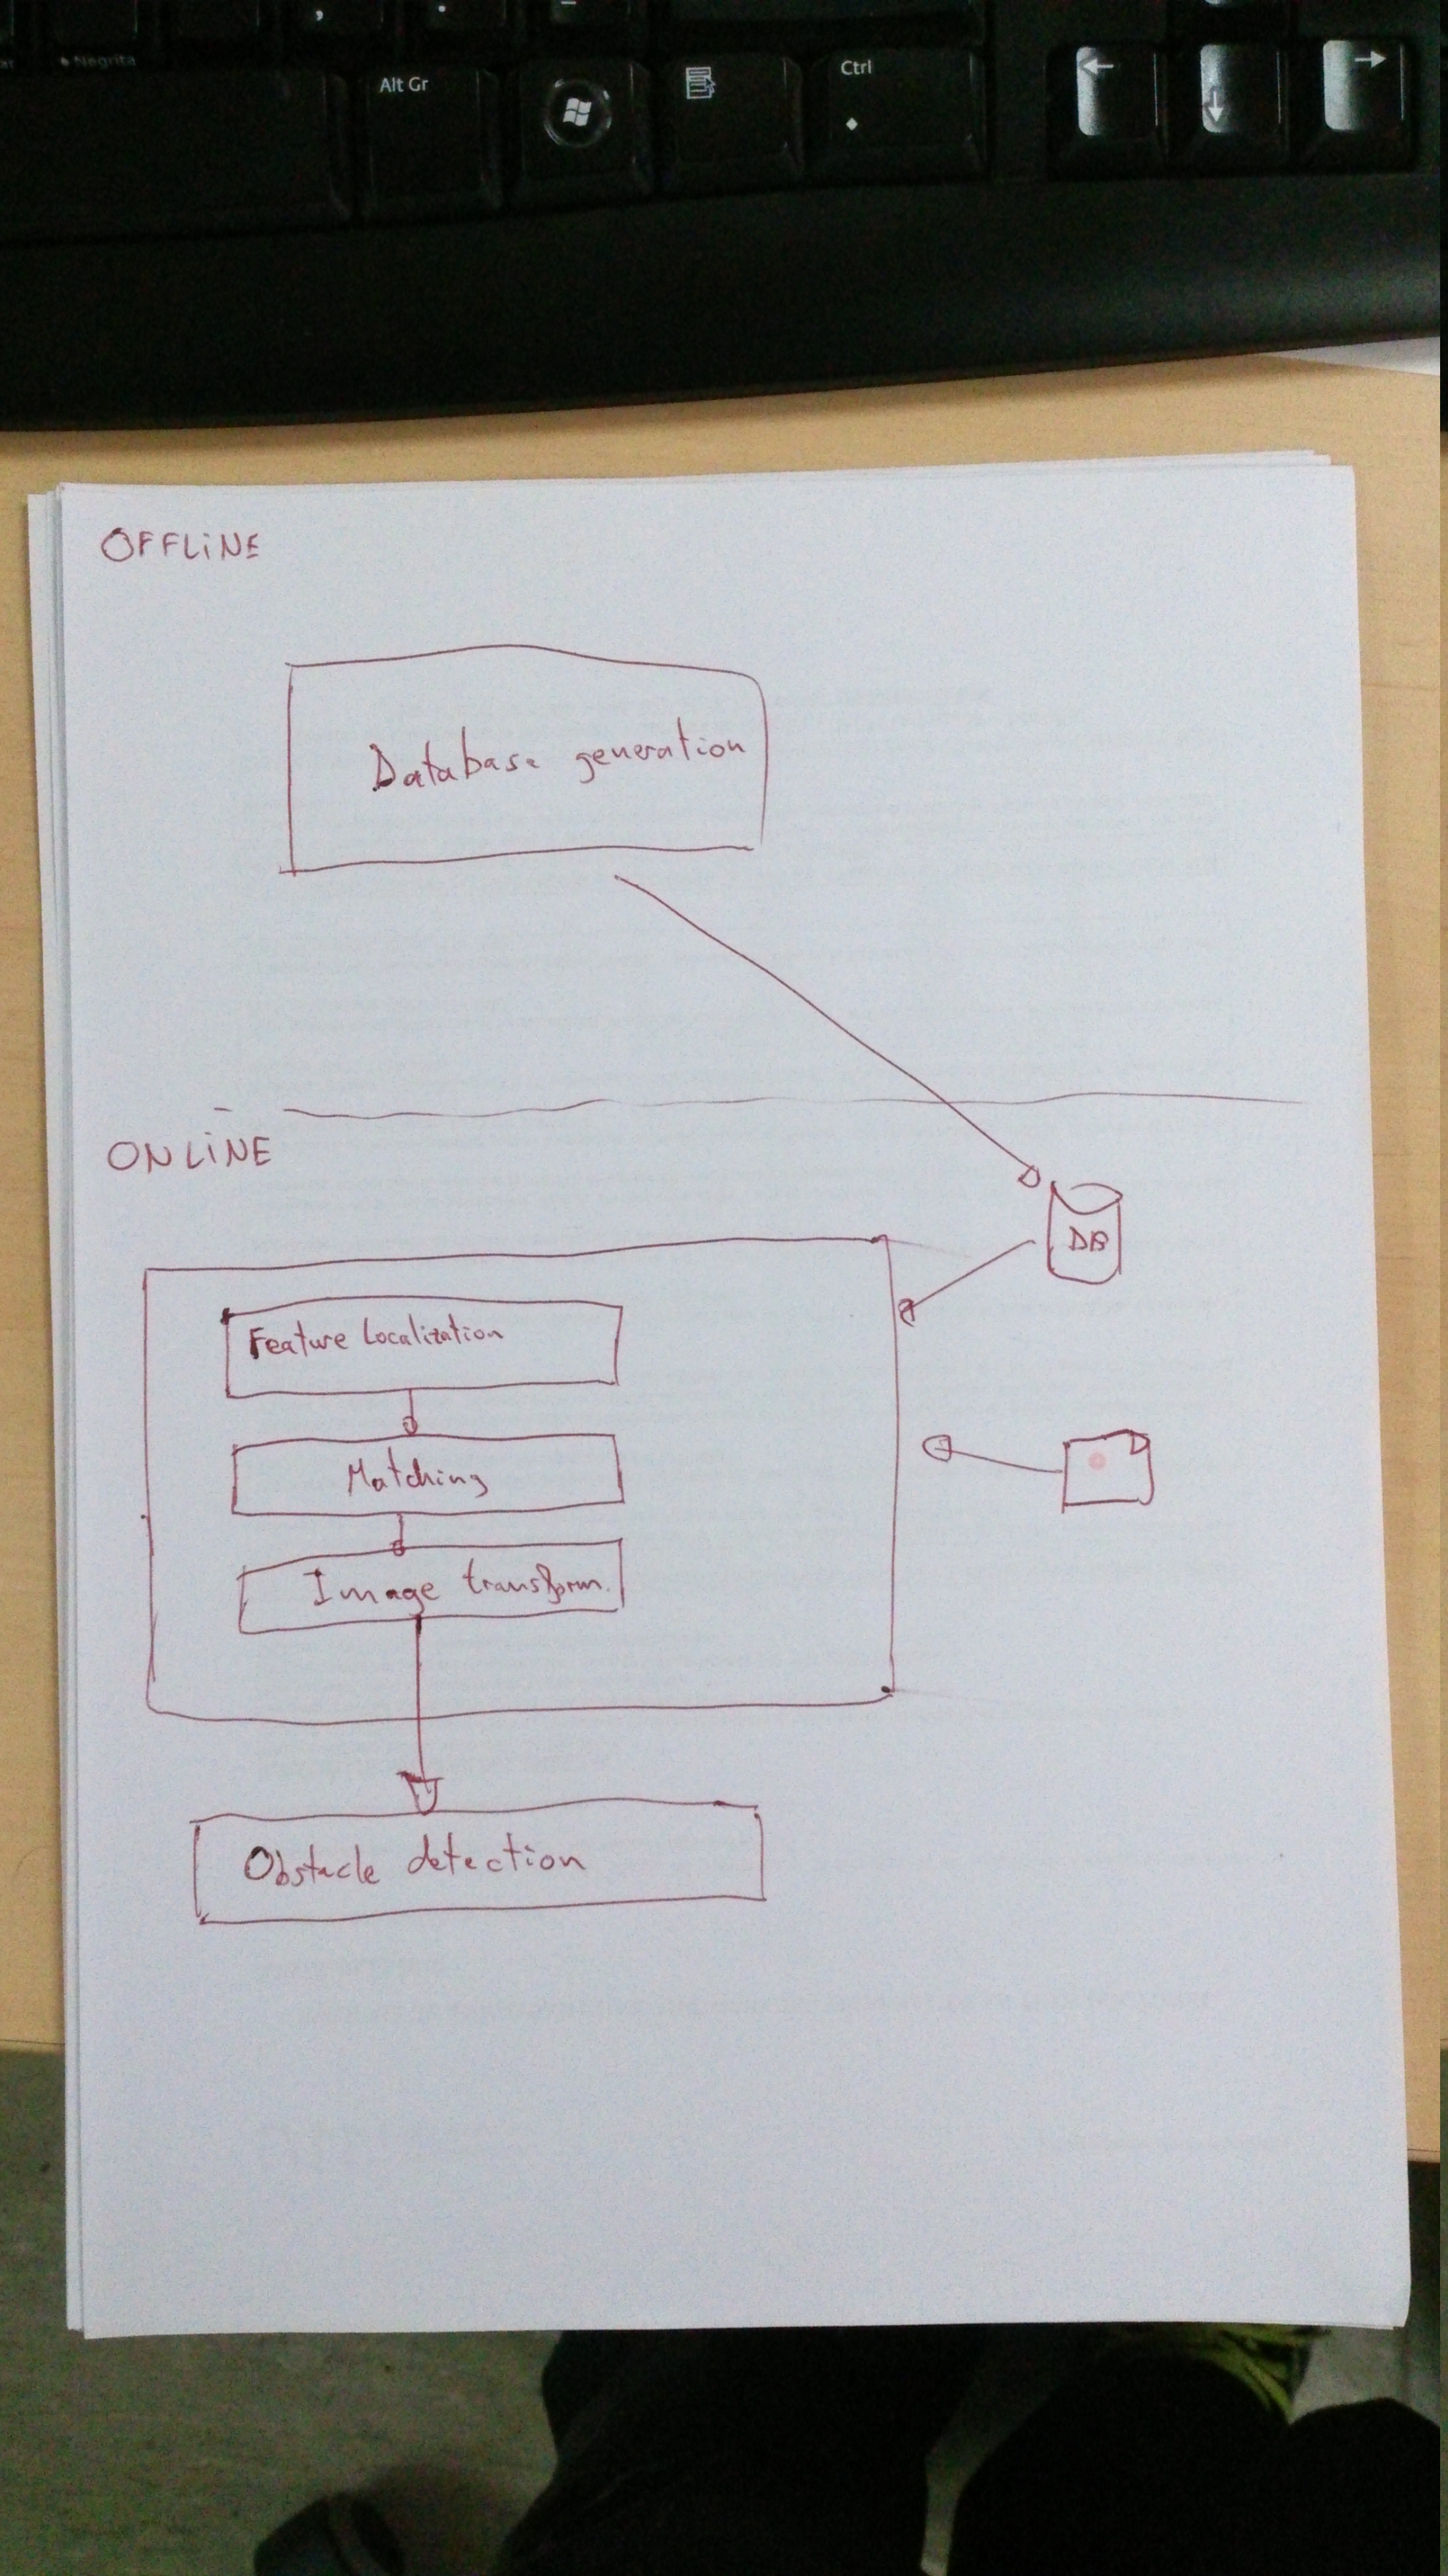 Negrita
Alt Gr
Ctrl
OFFLINE
Database generation
ONLINE
DB
Feature Localization
Matching
Image transform.
Obstacle detection